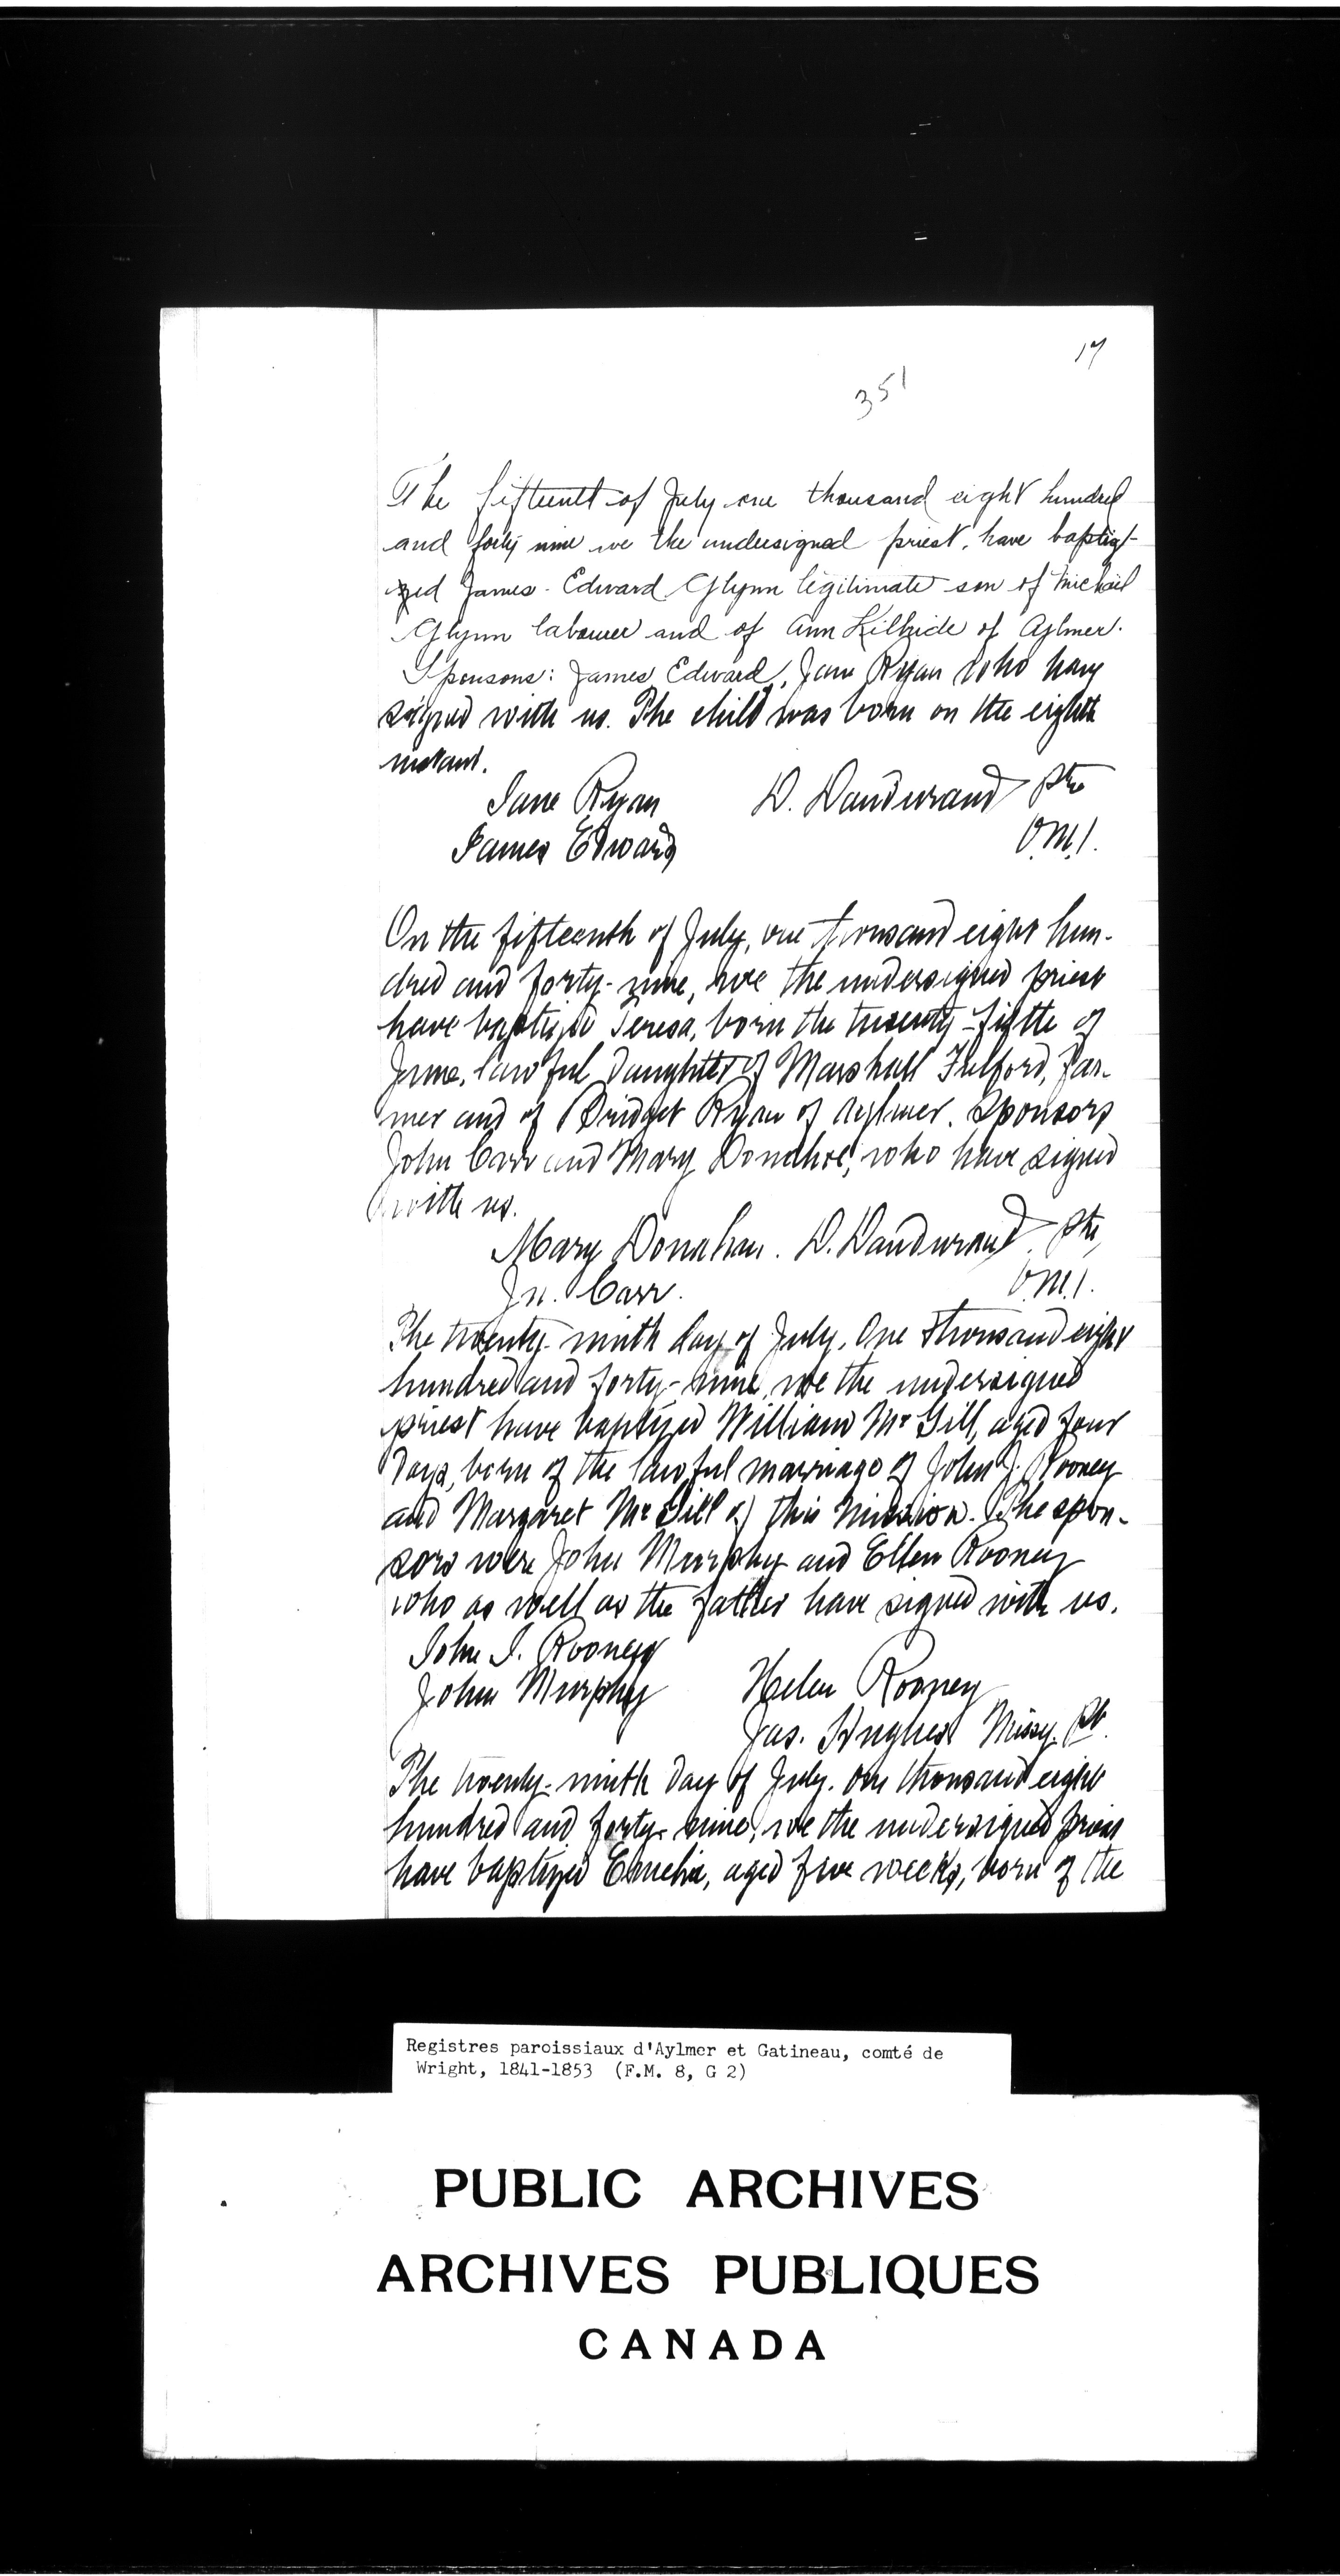 17
351
The fifteenth of July one thousand eight hundred
and forty nine we the undersigned priest, have baptiz-
zed James-Edward Glynn legitimate son of Michael
Glynn labourer and of Ann Kilbride of Aylmer.
Sponsons: James Edward, Jane Ryan who have
signed with us. The child was born on the eighth
instant.
Jane Ryan D. Dandurand Ptre
James Edward O.M.I.
On the fifteenth of July, one thousand eight hun-
dred and forty-nine, we the undersigned priest
have baptized Teresa, born the twenty-fifth of
June, lawful daughter of Marshall Fulford, far-
mer and of Bridget Ryan of Aylmer. Sponsors
John Carr and Mary Donahoe, who have signed
with us.
Mary Donahue. D. Dandurand Ptre,
Jn. Carr. O.M.I.
The twenty-ninth day of July, One thousand eight
hundred and forty-nine, we the undersigned
priest have baptized William McGill, aged four
days, born of the lawful marriage of John J. Rooney
and Margaret McGill of this Mission. The spon-
sors were John Murphy and Ellen Rooney
who as well as the father have signed with us.
John J. Rooney
John Murphy Helen Rooney
Jas. Hughes Missy. Pt.
The twenty-ninth day of July, one thousand eight
hundred and forty-nine, we the undersigned priest
have baptized Emelia, aged five weeks, born of the
Registres paroissiaux d'Aylmer et Gatineau, comté de
Wright, 1841-1853 (F.M. 8, G 2)
PUBLIC ARCHIVES
ARCHIVES PUBLIQUES
CANADA